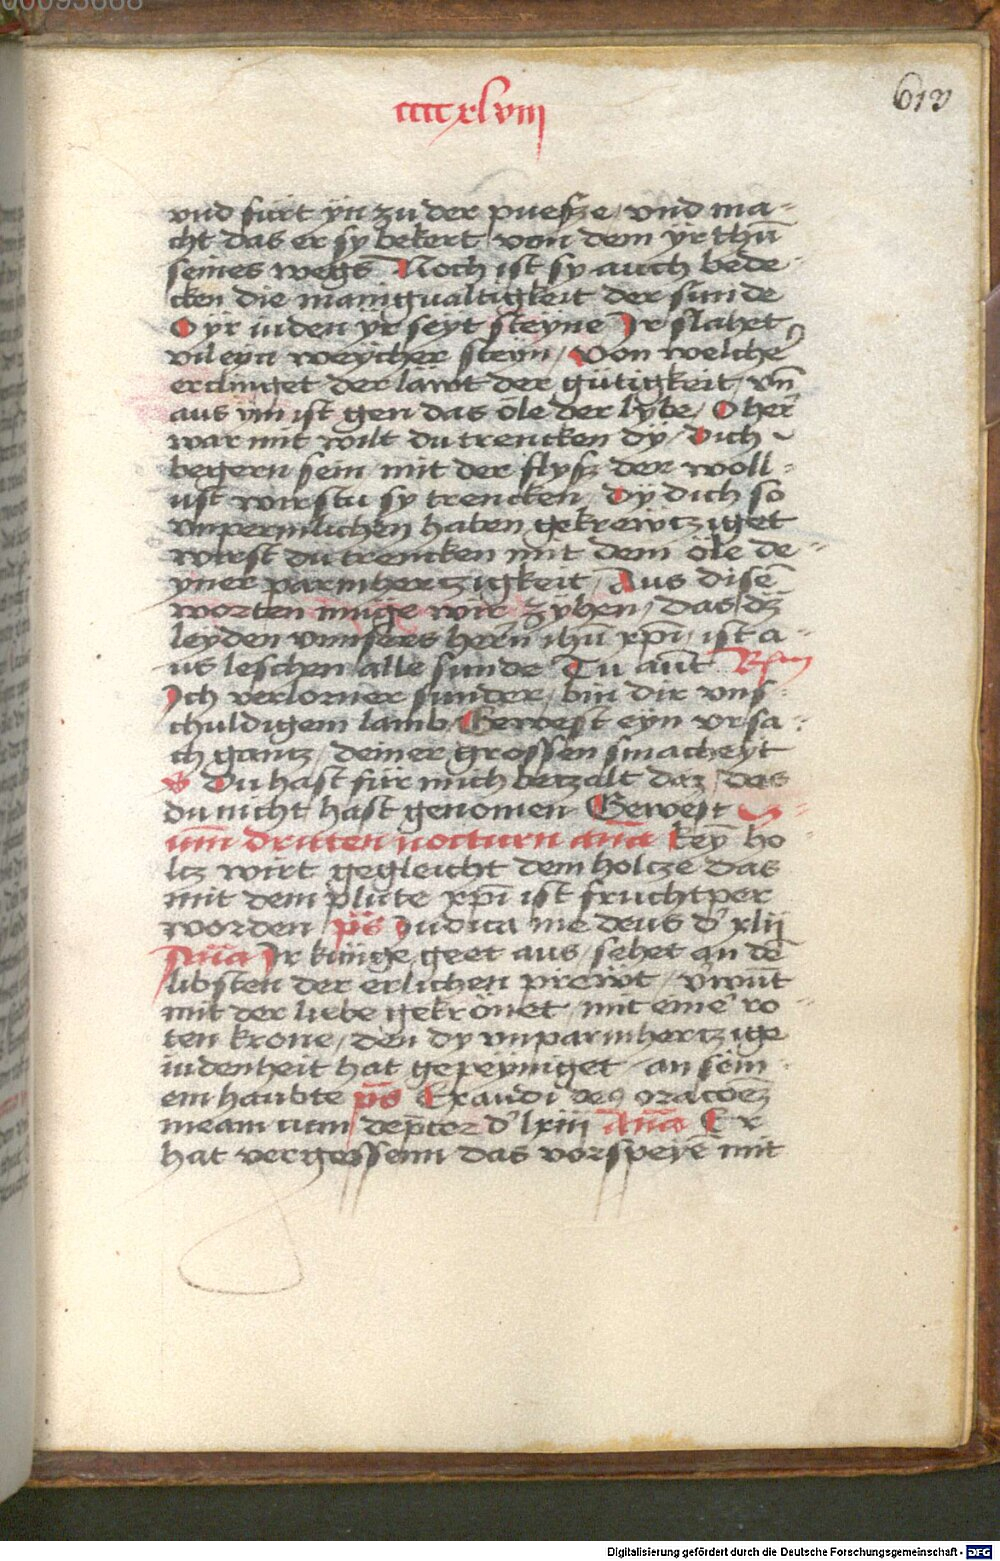 00093668
ccccxlviii
613
vnd fürt ÿn zu der puesze / vnd ma-
cht das er sy bekert von dem ÿrthū
seines wegs Noch ist sy auch bede-
cken die manigualtigkeit der sunde
O ÿr iuden ÿr seyt steyne Ir slahet
vil eyn weycher steyn / Von welche'
erclinget der läwt der gütigkeit / vn̄
aus ÿm ist gen das öle der lybe / O her'
war mit wilt du trencken dÿ / dich
begern sein / mit der flysz der woll-
ust wirstu sy trencken / Dÿ dich so
vnpermlichen haben gekrewtziget
wirst du trencken mit dem öle de-
yner parmhertzigkeit / Aus disē
worten müge wir zÿhen / das dz
leyden vnnsers herr̄n ihū xp̄i / ist a-
us leschen alle sunde Tu aūt Rsm
Ich verlorner sunder / bin dir vns-
chuldigem lamb / Gewest eyn vrsa-
ch gantz / deiner grossen smacheyt
V Du hast für mich betzalt daz / das
du nicht hast genomen Gewest Z-
um dritten nocturn an̄a Keȳ ho
ltz wirt gegleicht dem holcze das
mit dem plute xp̄i ist fruchtper
worden / p̄s Iudica me deus d' xlii
An̄a Ir künge geet aus / sehet an dē
libsten der erlichen prewt / v'wūt
mit der liebe gekrönet / mit eine' ro-
ten krone / den dy vnparmhertzige
iudenheit hat gepeyniget an sein-
em haubte p̄s Exaudi deus oracōeʒ
meam cum dep̄cor d' lxiii An̄a Er
hat vergessenn das vorspeyē mit
Digitalisierung gefördert durch die Deutsche Forschungsgemeinschaft - DFG